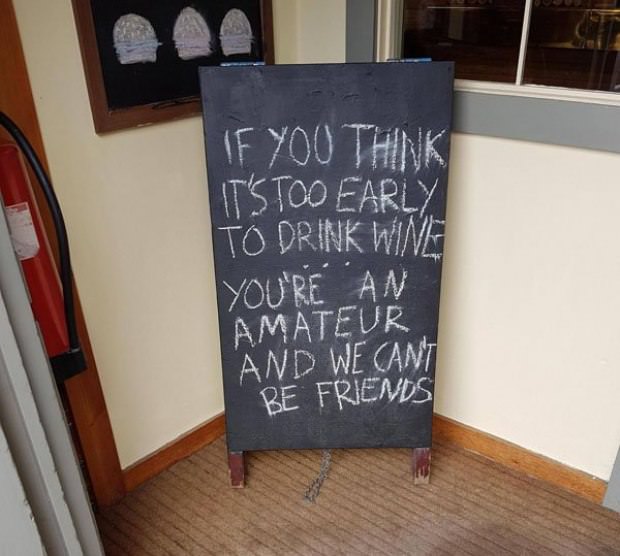 IF YOU THINK
IT'S TOO EARLY
TO DRINK WINE
...
YOU'RE AN
AMATEUR
AND WE CAN'T
BE FRIENDS